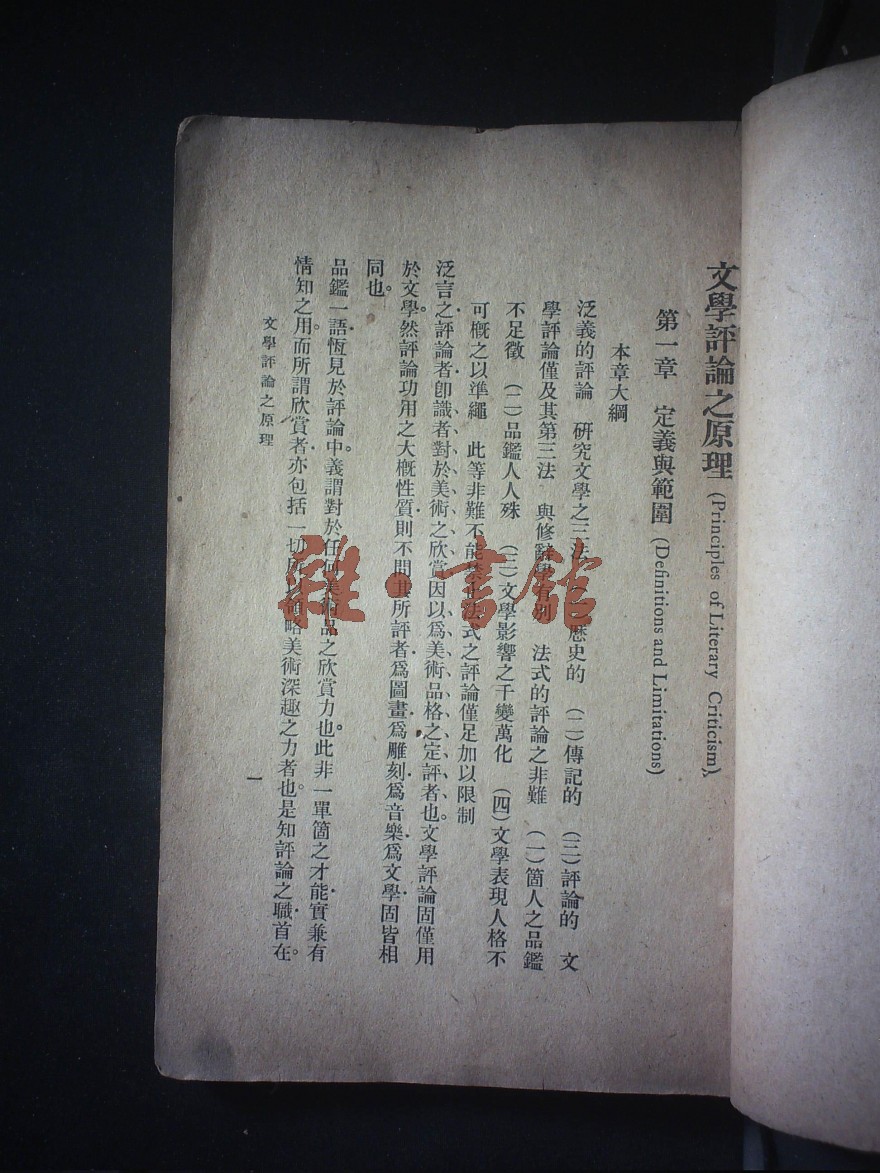 文學評論之原理 (Principles of Literary Criticism)
第一章 定義與範圍 (Definitions and Limitations)
本章大綱
泛義的評論 研究文學之三法 (一)歷史的 (二)傳記的 (三)評論的 文
學評論僅及其第三法 與修辭學有別 法式的評論之非難 (一)箇人之品鑑
不足徵 (二)品鑑人人殊 (三)文學影響之千變萬化 (四)文學表現人格不
可概之以準繩 此等非難不能 法式之評論僅足加以限制
泛言之評論者卽識者對於美術之欣賞因以爲美術品格之定評者也。文學評論固僅用
於文學。然評論功用之大概性質則不問其所評者爲圖畫爲雕刻爲音樂爲文學固皆相
同也。
品鑑一語恆見於評論中。義謂對於任何美術品之欣賞力也。此非一單箇之才能實兼有
情知之用。而所謂欣賞者亦包括一切所以領略美術深趣之力者也。是知評論之職首在。
文學評論之原理
一
雜·書館